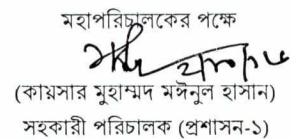 মহাপরিচালকের পক্ষে
(কায়সার মুহাম্মদ মঈনুল হাসান)
সহকারী পরিচালক (প্রশাসন-১)